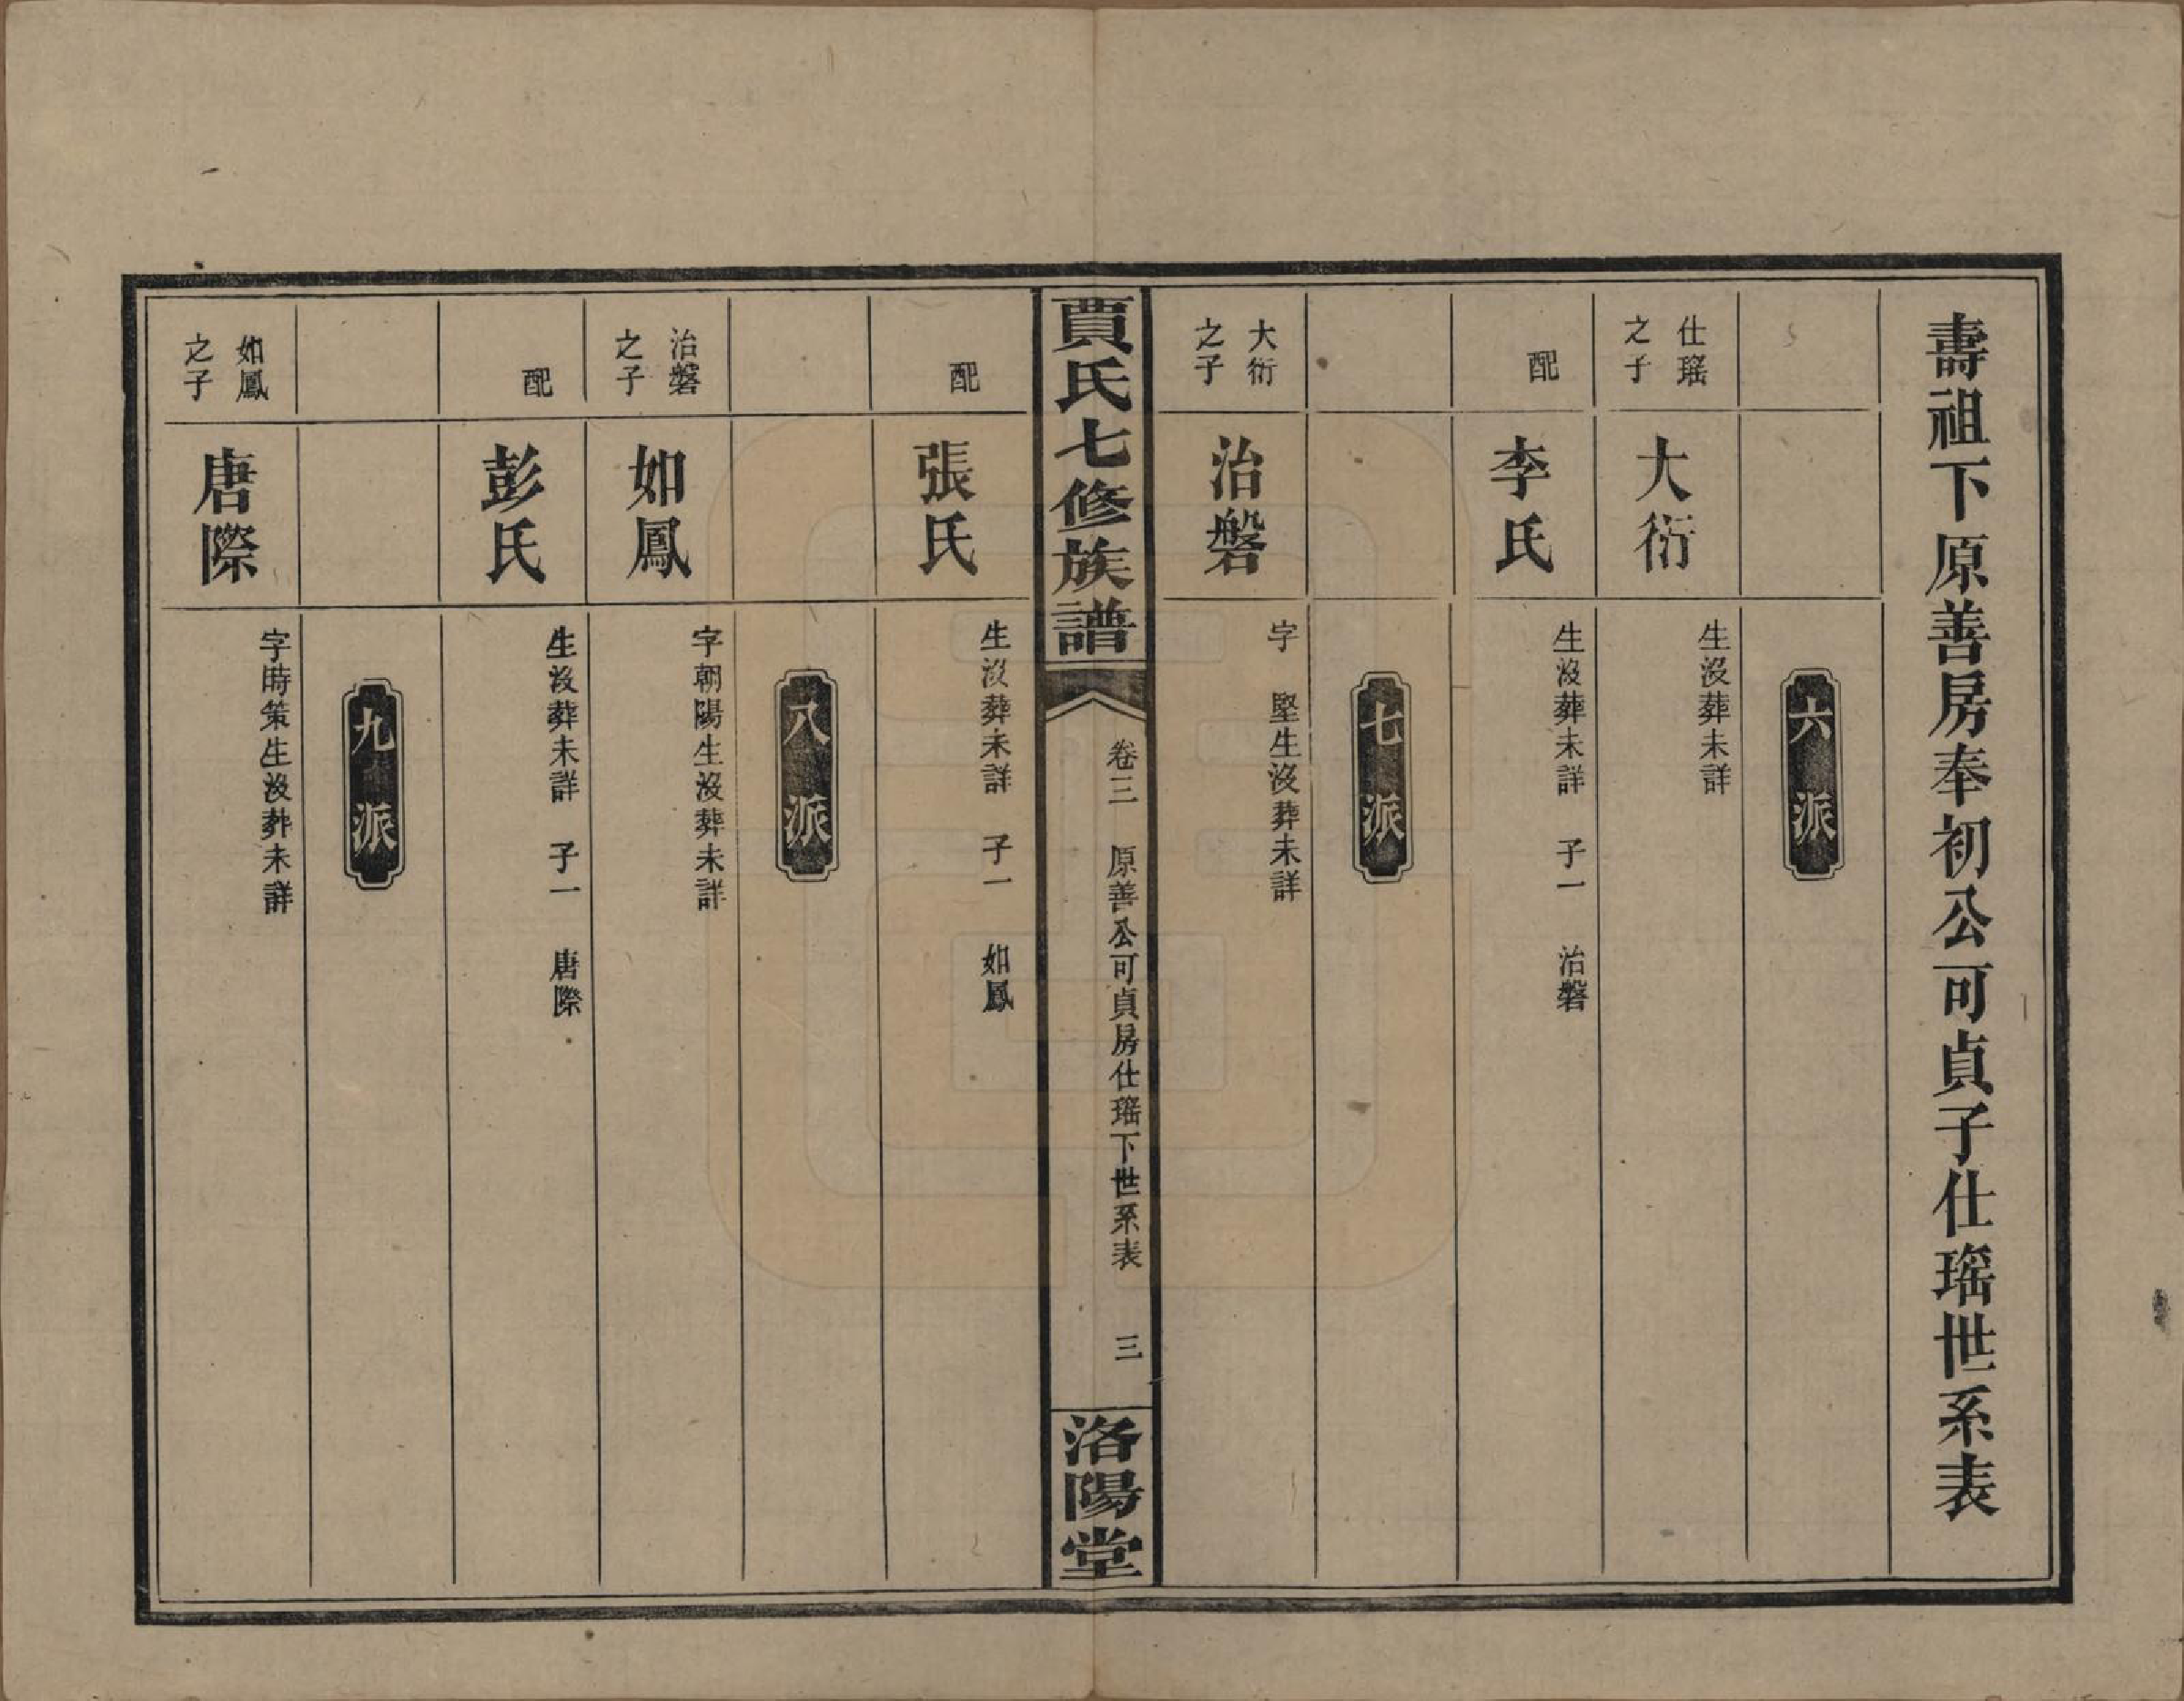 壽祖下原善房奉初公可貞子仕瑤世系表
六派
仕瑤
之子
大衍
生沒葬未詳
配
李氏
生沒葬未詳　子一　治磐
七派
大衍
之子
治磐
字　堅生沒葬未詳
賈氏七修族譜
卷三　原善公可貞房仕瑤下世系表　三
洛陽堂
配
張氏
生沒葬未詳　子一　如鳳
八派
治磐
之子
如鳳
字朝陽生沒葬未詳
配
彭氏
生沒葬未詳　子一　唐際
九派
如鳳
之子
唐際
字時策生沒葬未詳